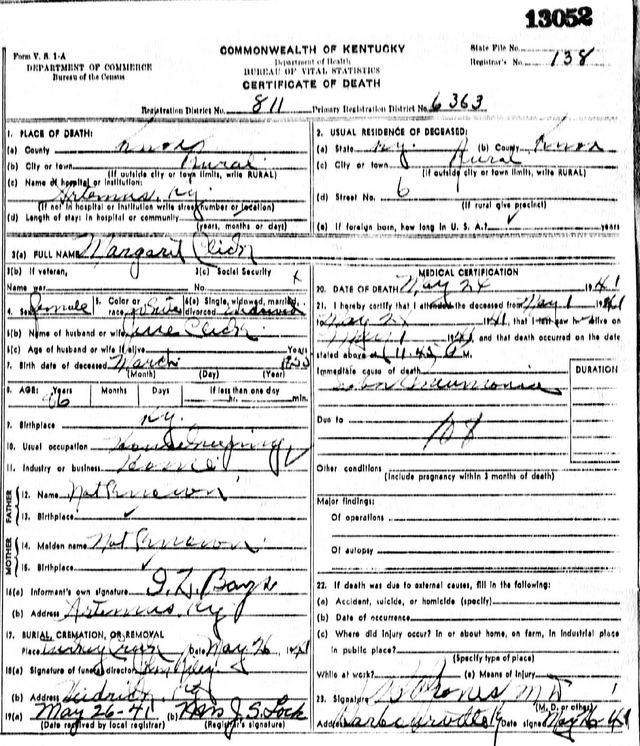 13052
Form V. S. 1-A
DEPARTMENT OF COMMERCE
Bureau of the Census
COMMONWEALTH OF KENTUCKY
Department of Health
BUREAU OF VITAL STATISTICS
CERTIFICATE OF DEATH
State File No.
Registrar's No. 138
Registration District No. 811 Primary Registration District No. 6363
1. PLACE OF DEATH:
(a) County Knox
(b) City or town Rural
(If outside city or town limits, write RURAL)
(c) Name of hospital or institution:
Artemus, Ky
(If not in hospital or institution write street number or location)
(d) Length of stay: in hospital or community
(years, months or days)
2. USUAL RESIDENCE OF DECEASED:
(a) State Ky. (b) County Knox
(c) City or town Rural
(If outside city or town limits, write RURAL)
(d) Street No. 6
(If rural give precinct)
(e) If foreign born, how long in U. S. A.? years
3(a) FULL NAME Margaret Click
3(b) If veteran, Name war
3(c) Social Security No. x
4. Sex Female 5. Color or race White 6(a) Single, widowed, married, divorced Widowed
6(b) Name of husband or wife Click
6(c) Age of husband or wife if alive Years
7. Birth date of deceased March
(Month) (Day) (Year)
8. AGE: Years Months Days If less than one day
hr. min.
9. Birthplace Ky.
10. Usual occupation Housekeeping
11. Industry or business Home
FATHER
12. Name Not Known
13. Birthplace
MOTHER
14. Maiden name Not Known
15. Birthplace
16(a) Informant's own signature
(b) Address Artemus, Ky
17. BURIAL, CREMATION, OR REMOVAL
Place Date May 26, 1941
18(a) Signature of funeral director
(b) Address
19(a) May 26-41 (b) Mrs J. S. Lock
(Date received by local registrar) (Registrar's signature)
MEDICAL CERTIFICATION
20. DATE OF DEATH May 24 1941
21. I hereby certify that I attended the deceased from May 1 1941
to May 1941, that I last saw alive on
1941 and that death occurred on the date
stated above at 11:45 M.
Immediate cause of death
Pneumonia
DURATION
Due to
108
Other conditions
(Include pregnancy within 3 months of death)
Major findings:
Of operations
Of autopsy
22. If death was due to external causes, fill in the following:
(a) Accident, suicide, or homicide (specify)
(b) Date of occurrence
(c) Where did injury occur? In or about home, on farm, in industrial place
in public place?
(Specify type of place)
While at work? (e) Means of injury
23. Signature Jones M D
(M. D. or other)
Address Barbourville Ky Date signed May 41